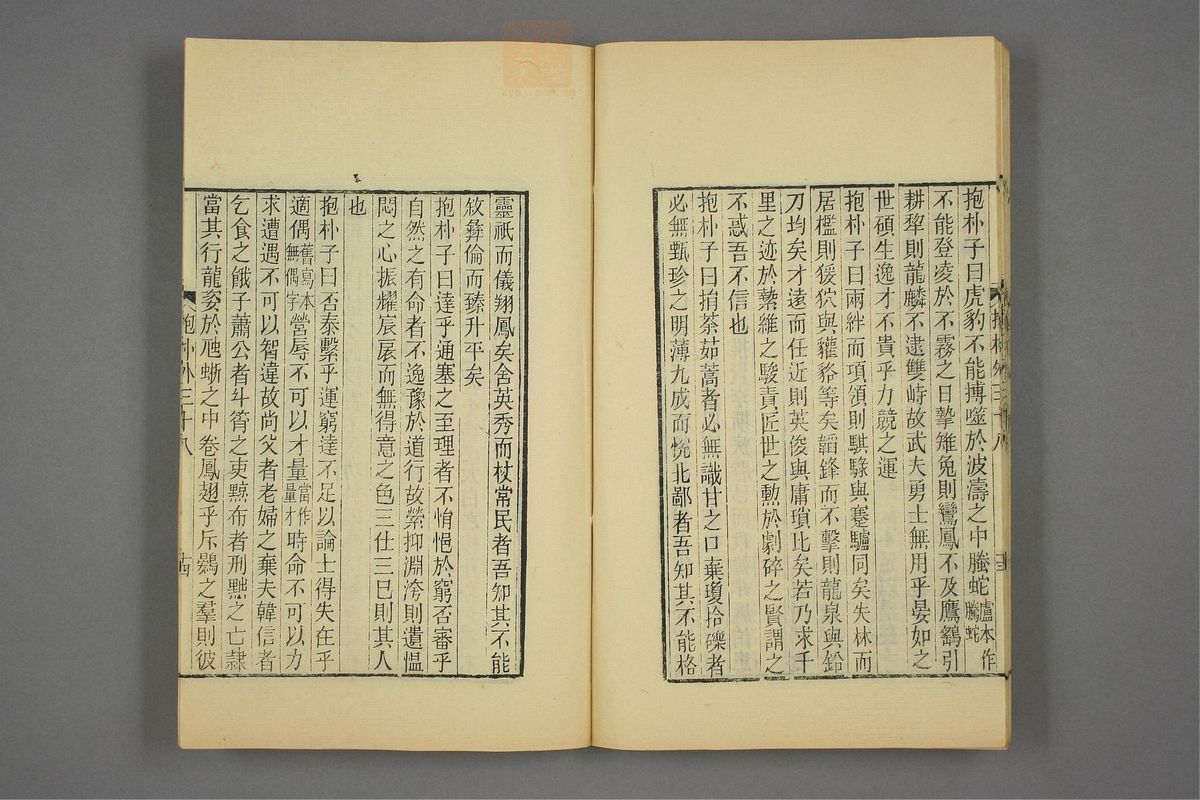 抱朴子曰虎豹不能搏噬於波濤之中螣蛇盧本作騰蛇
不能登凌於不霧之日摯雉兔則鸞鳳不及鷹鷂引
耕犂則龍麟不逮雙峙故武夫勇士無用乎晏如之
世碩生逸才不貴乎力競之運
抱朴子曰兩絆而項領則騏騄與蹇驢同矣失林而
居檻則猨狖與貛貉等矣韜鋒而不擊則龍泉與鉛
刀均矣才遠而任近則英俊與庸瑣比矣若乃求千
里之迹於縶維之駿責匠世之勲於劇碎之賢謂之
不惑吾不信也
抱朴子曰捐荼茹蒿者必無識甘之口棄瓊拾礫者
必無甄珍之明薄九成而悅北鄙者吾知其不能格
抱朴外三十八
十三
靈祇而儀翔鳳矣舍英秀而杖常民者吾知其不能
敘彝倫而臻升平矣
抱朴子曰達乎通塞之至理者不悁悒於窮否審乎
自然之有命者不逸豫於道行故縈抑淵洿則遺愠
悶之心振耀宸扆而無得意之色三仕三巳則其人
也
抱朴子曰否泰繫乎運窮達不足以論士得失在乎
適偶舊寫本無偶字營辱不可以才量當作量才時命不可以力
求遭遇不可以智違故尚父者老婦之棄夫韓信者
乞食之餓子蕭公者斗筲之吏黥布者刑黜之亡隷
當其行龍姿於虺蜥之中卷鳳翅乎斥鷃之羣則彼
抱朴外三十八
十四